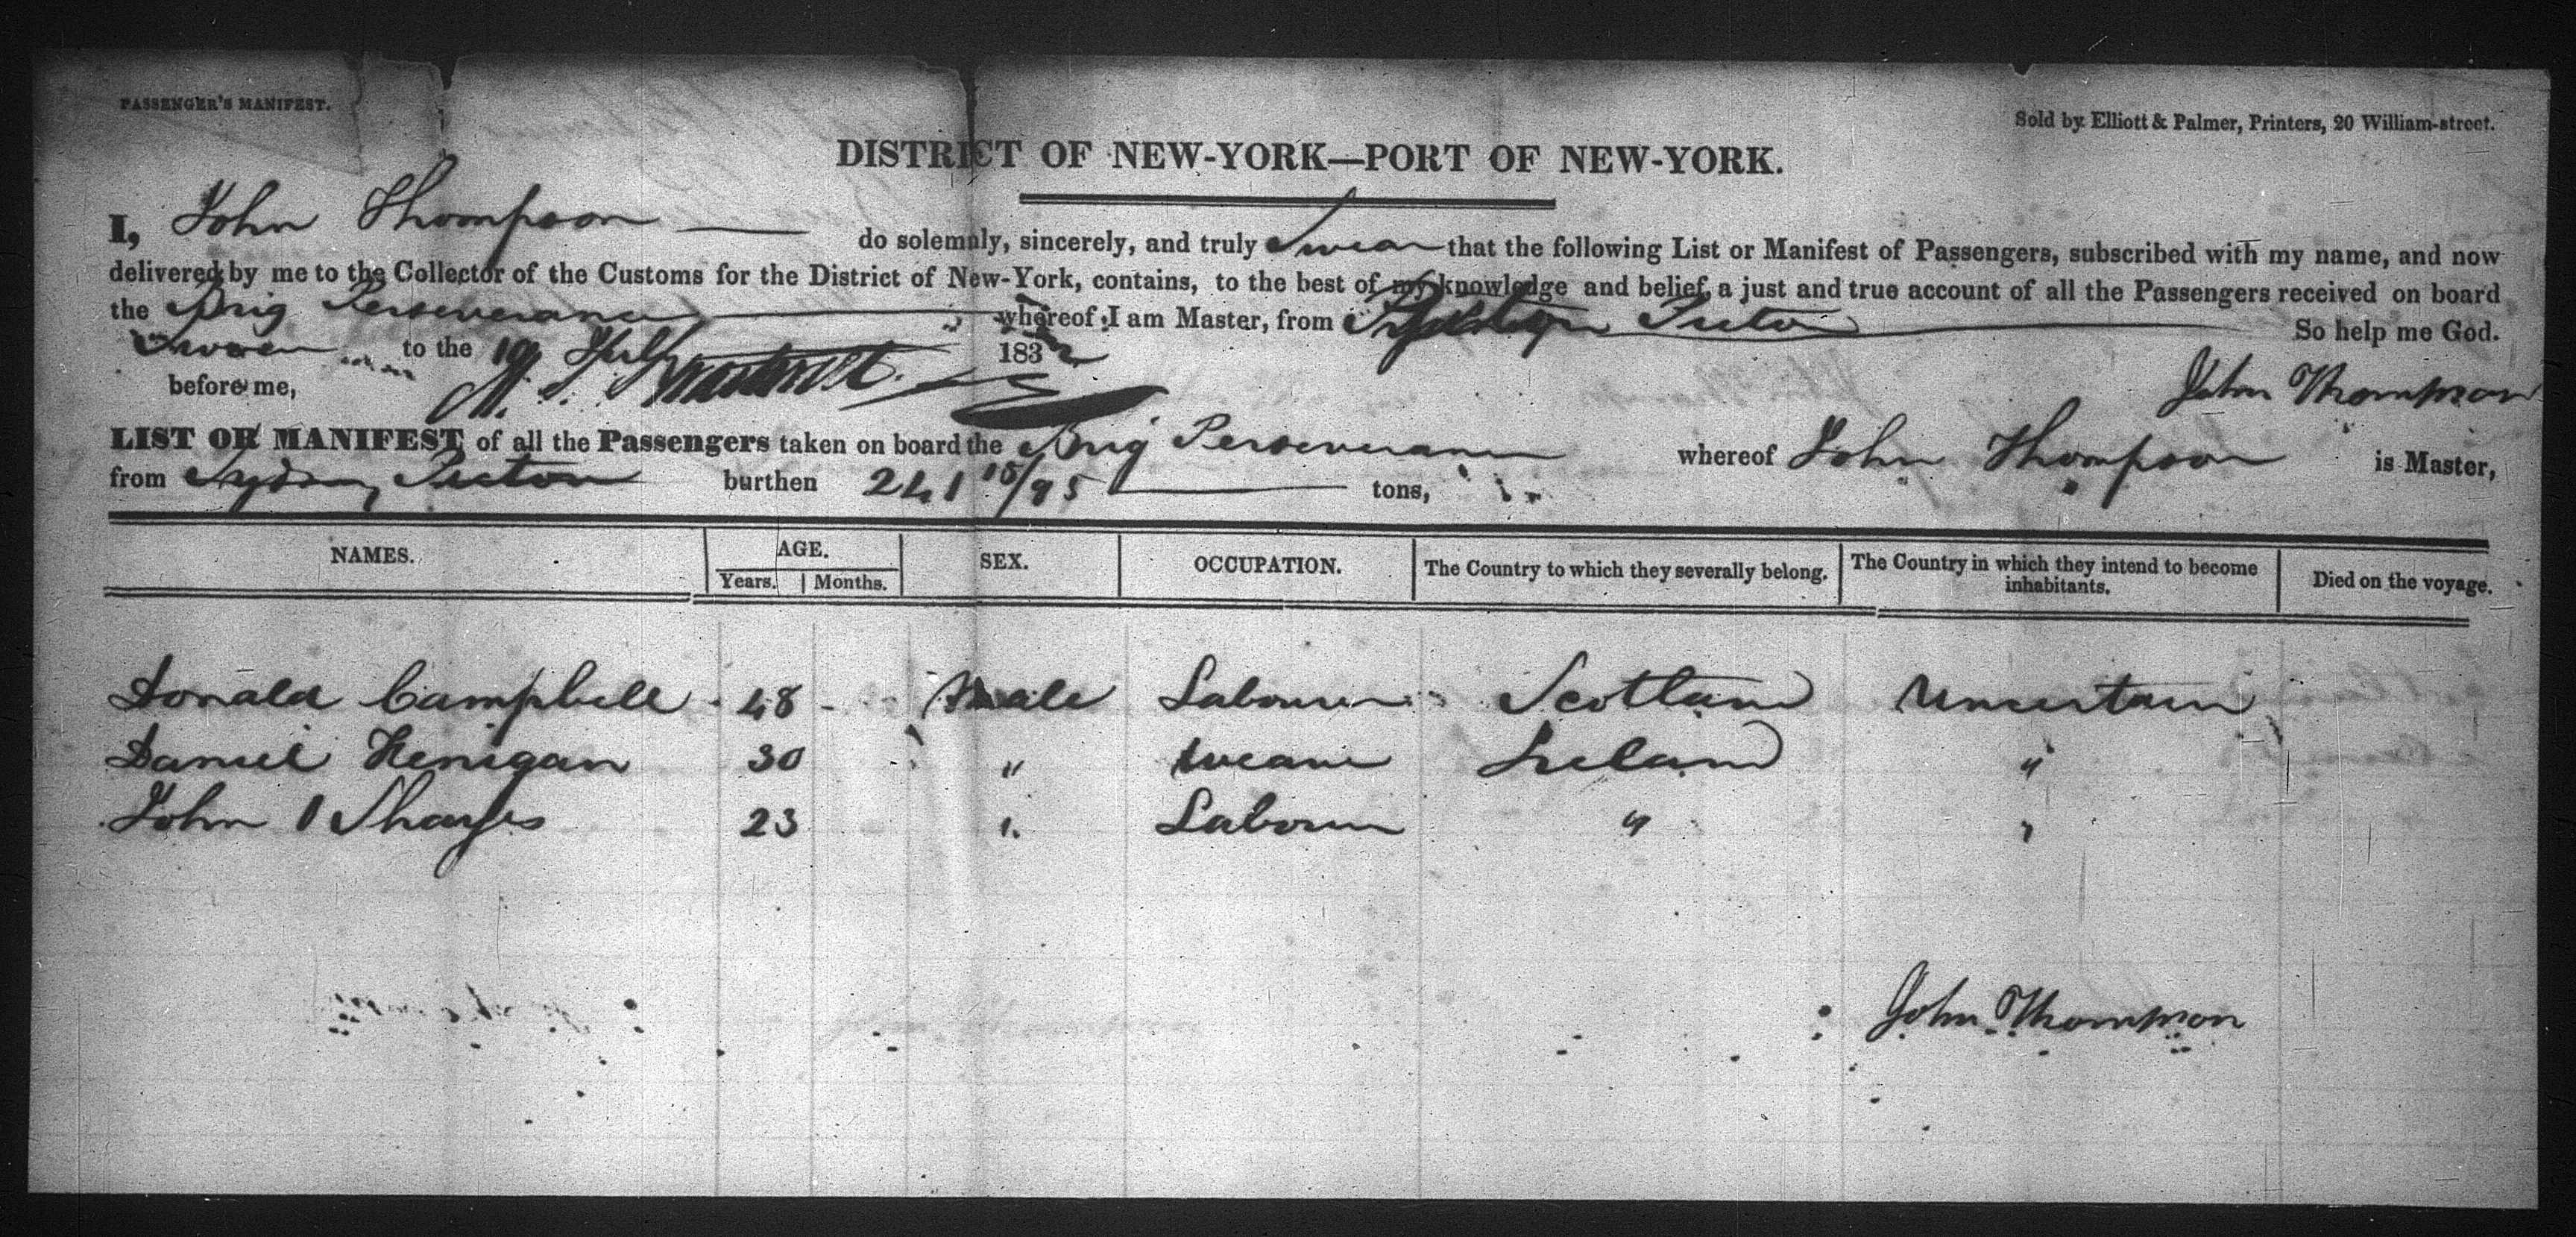 PASSENGER'S MANIFEST.
Sold by Elliott & Palmer, Printers, 20 William-street.
DISTRICT OF NEW-YORK—PORT OF NEW-YORK.
I, John Thompson do solemnly, sincerely, and truly Swear that the following List or Manifest of Passengers, subscribed with my name, and now
delivered by me to the Collector of the Customs for the District of New-York, contains, to the best of my knowledge and belief, a just and true account of all the Passengers received on board
the Brig Perseverance whereof I am Master, from Picton So help me God.
Sworn to the 19 1832
before me,
John Thompson
LIST OR MANIFEST of all the Passengers taken on board the Brig Perseverance whereof John Thompson is Master,
from Sydney Picton burthen 241 18/95 tons,
NAMES. AGE. SEX. OCCUPATION. The Country to which they severally belong. The Country in which they intend to become inhabitants. Died on the voyage.
Years. Months.
Donald Campbell 48 Male Labourer Scotland Uncertain
Daniel Henigan 30 " Weaver Ireland "
John 23 " Labourer " "
John Thompson